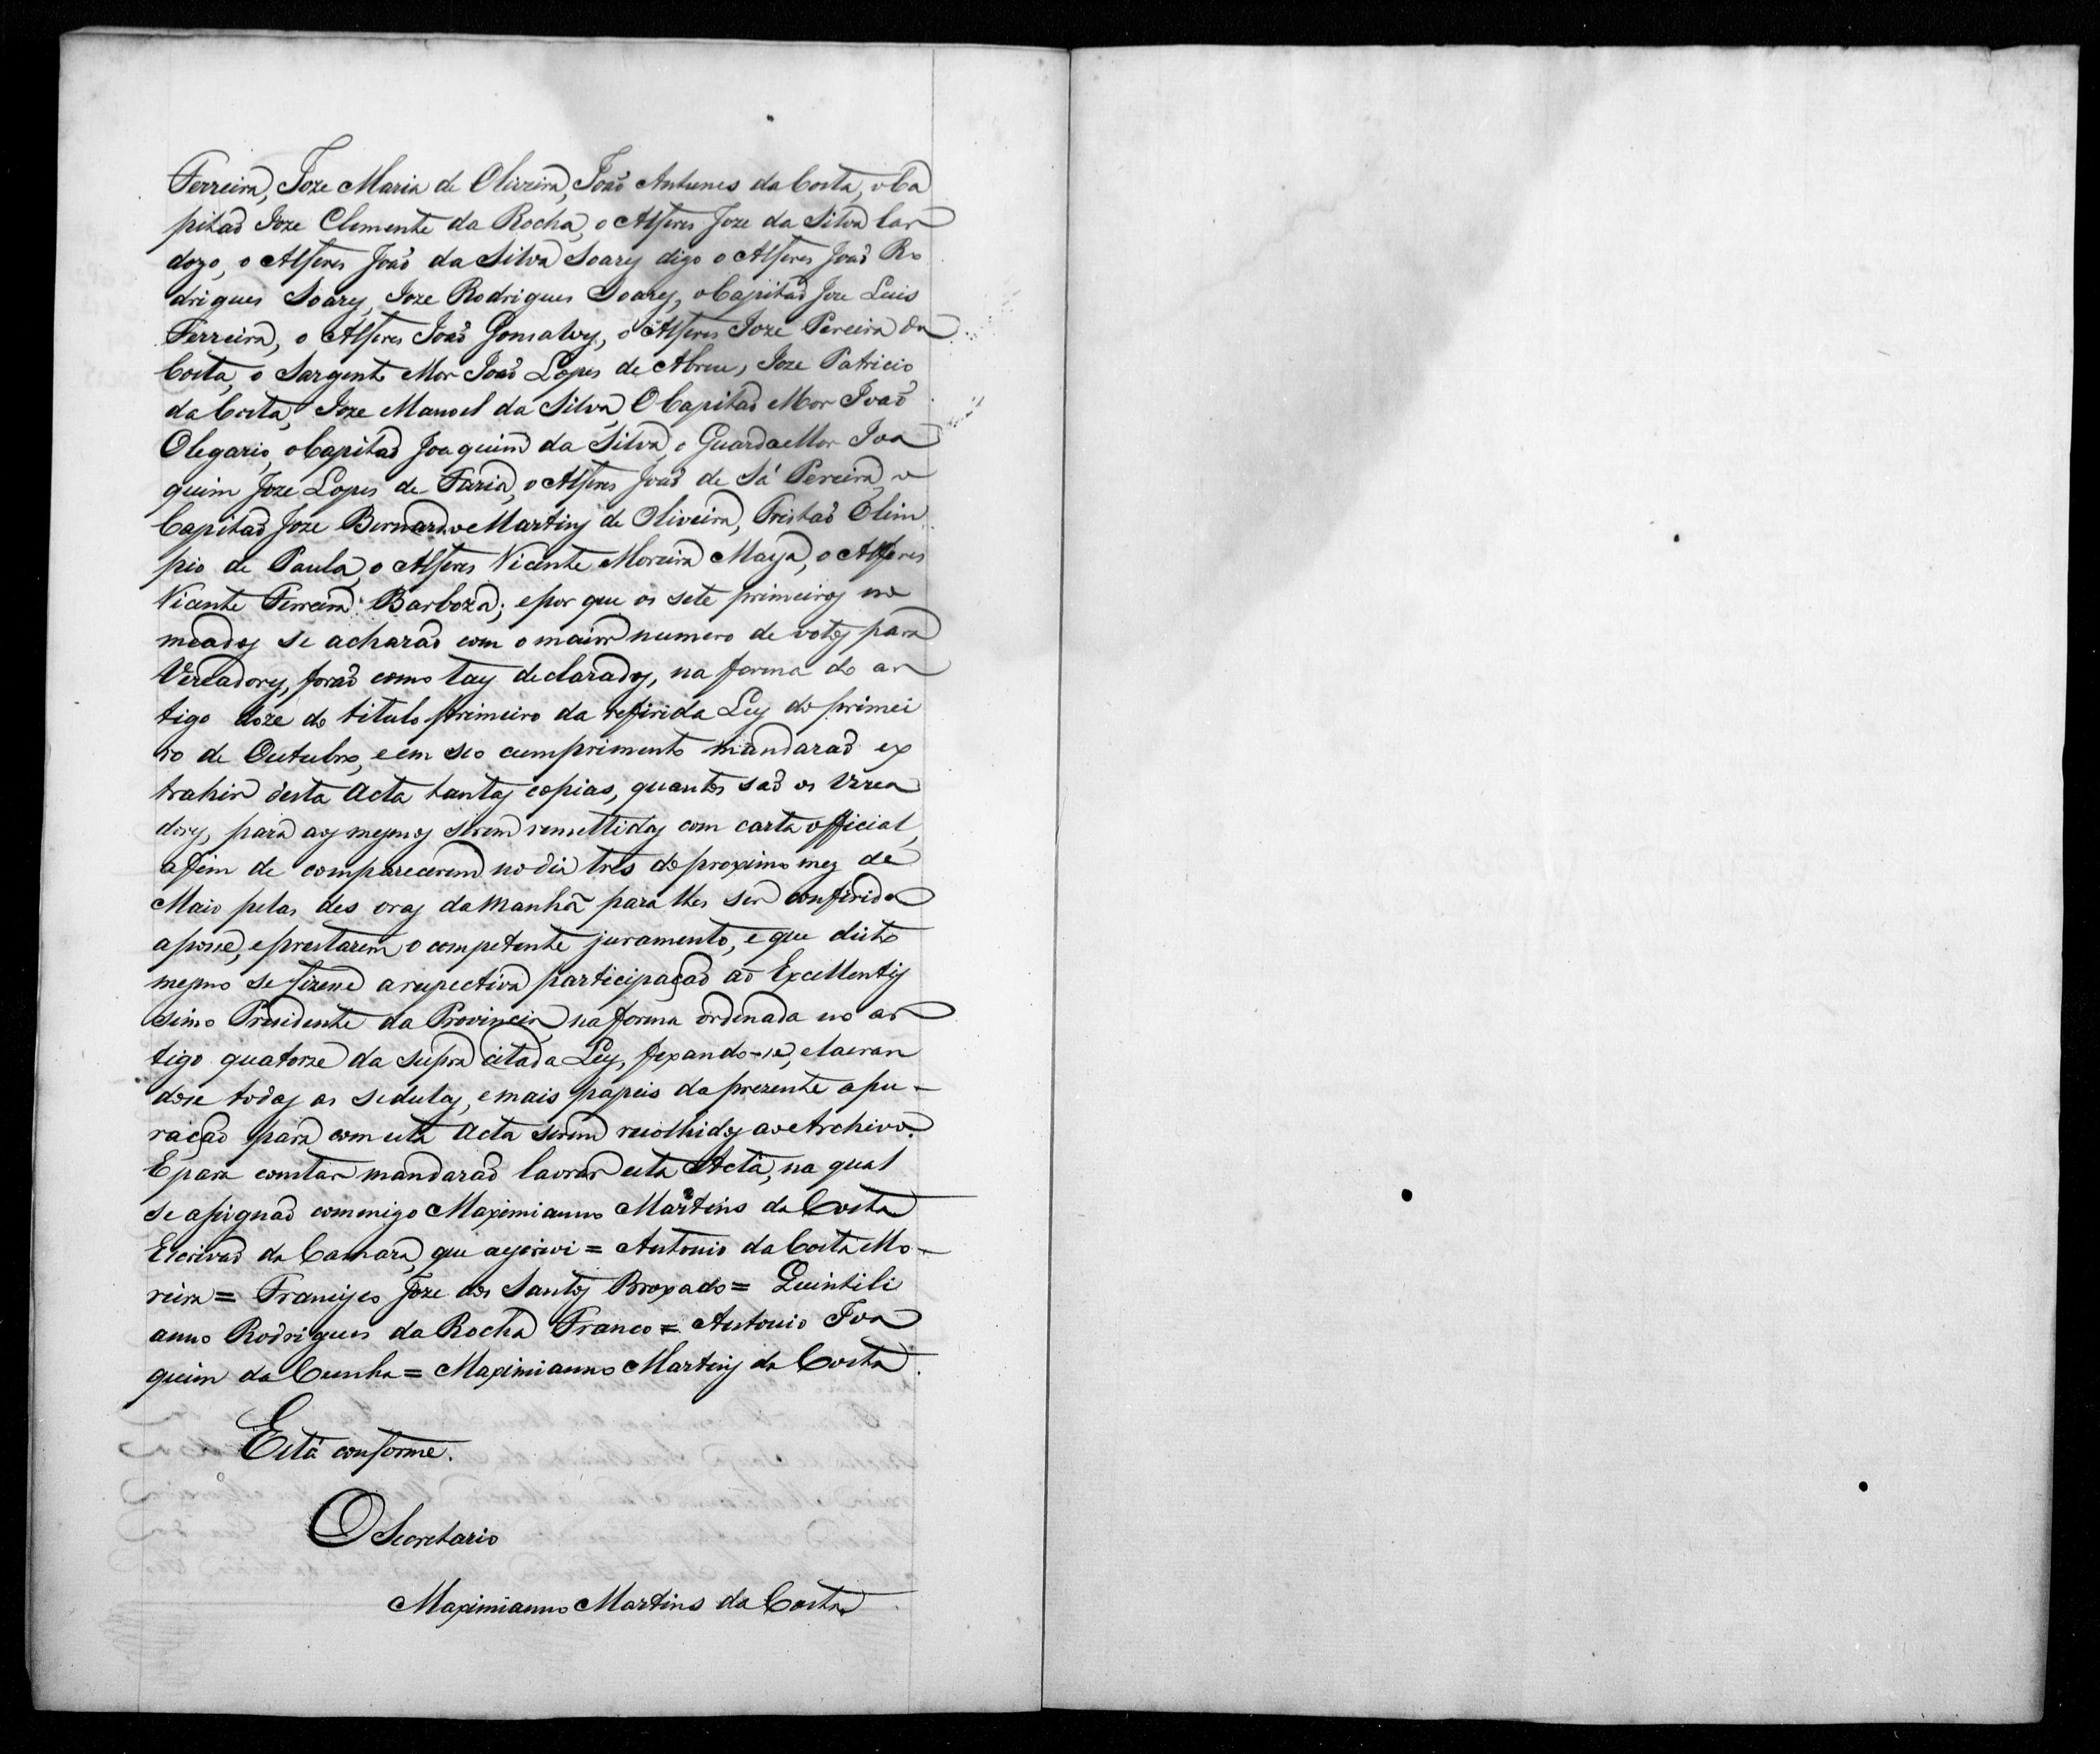 Ferreira, Joze Maria de Oliveira, João Antunes da Costa, o Ca
pitaõ Joze Clemente da Rocha, o Alferes Joze da Silva Car
dozo, o Alferes Joaõ da Silva Soares digo o Alferes Joaõ Ro
drigues Soares, Joze Rodrigues Soares, o Capitaõ Joze Luis
Ferreira, o Alferes Joaõ Gonsalves, o Alferes Joze Pereira da
Costa, o Sargento Mor Joaõ Lopes de Abreu, Joze Patricio
da Costa, Joze Manoel da Silva, O Capitaõ Mor Joaõ
Olegario, o Capitaõ Joaquim da Silva, o Guarda Mor Joa
quim Joze Lopes de Faria, o Alferes Joaõ de Sá Pereira, o
Capitaõ Joze Bernardo Martins de Oliveira, Tristaõ Olim
pio de Paula, o Alferes Vicente Moreira Maya, o Alferes
Vicente Ferreira Barboza; e por que os sete primeiros no
meados se acharaõ com o maior numero de votos para
Vereadores, foraõ como taes declarados, na forma do ar
tigo doze do titulo primeiro da referida Ley do primei
ro de Outubro, e em seo cumprimento mandaraõ ex
trahir desta Acta tantas copias, quantos saõ os Verea
dores, para aos mesmos serem remettidas com carta official,
afim de comparecerem no dia tres do proximo mez de
Maio pelas des oras da manhã para lhes ser conferida
a posse, e prestarem o competente juramento, e que disto
mesmo se fizesse a respectiva participaçaõ ao Excellentis
simo Presidente da Provincia na forma ordenada no ar
tigo quatorze da supra citada Ley, fexando-se, e lacran
dose todas as sedulas, e mais papeis da prezente apu-
raçaõ para com esta Acta serem recolhidos ao Archivo.
E para constar mandaraõ lavrar esta Acta, na qual
se assignaõ comenigo Maximianno Martins da Costa
Escrivaõ da Camara, que a escrevi = Antonio da Costa Mo-
reira = Francisco Joze dos Santos Broxado = Quintili
anno Rodrigues da Rocha Franco = Antonio Joa
quim da Cunha = Maximianno Martins da Costa.
Está conforme.
O Secretario
Maximianno Martins da Costa